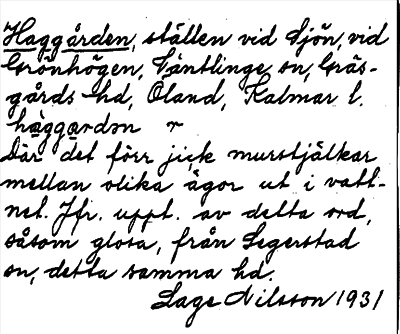 Haggården, ställen vid Sjön, vid
Grönhögen, Ventlinge sn, Gräs-
gårds hd, Öland, Kalmar l.
hàggardən
Där det förr gick murstjälkar
mellan olika ägor ut i vatt-
net. Jfr. uppt. av detta ord,
såsom glosa, från Segerstad
sn, detta samma hd.
Lage Nilsson 1931